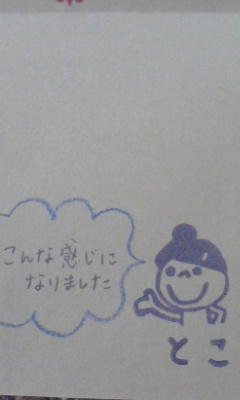 こんな感じに
なりました
とこ